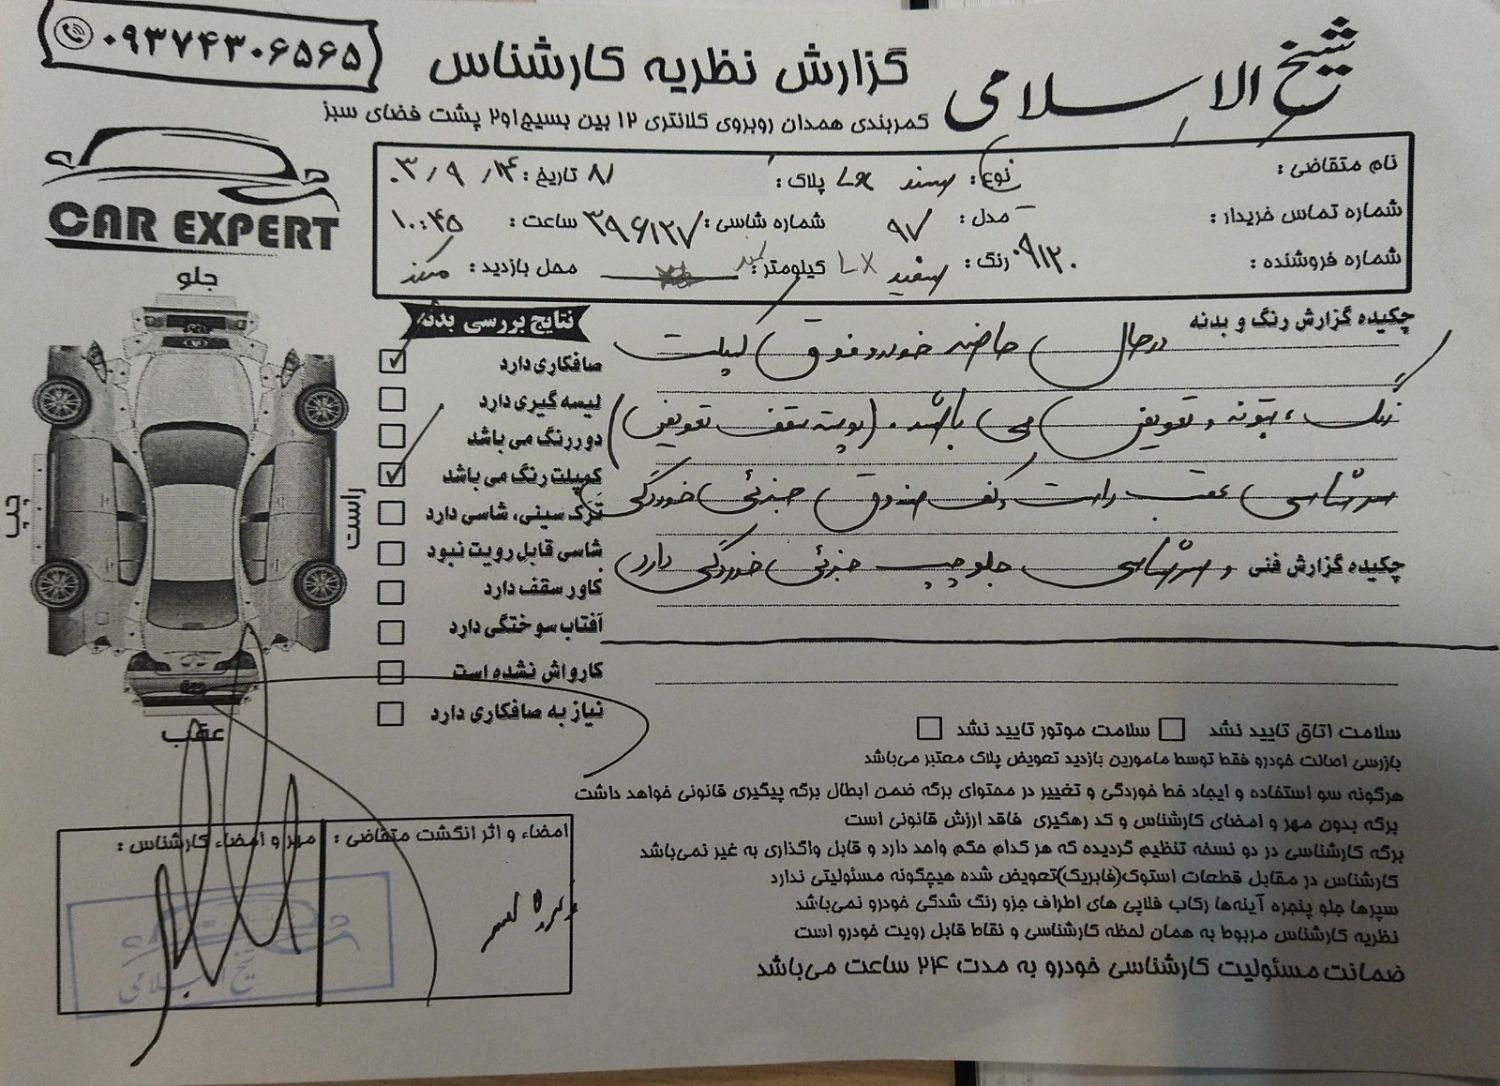 ۰۹۳۷۴۳۰۶۵۶۵
شیخ الاسلامی
گزارش نظریه کارشناس
کمربندی همدان روبروی کلانتری ۱۲ بین بسیج۱و۲ پشت فضای سبز
CAR EXPERT
نام متقاضی :
نوع : سمند LX پلاک : ۸۱ تاریخ : ۰۳/۹/۱۴
شماره تماس خریدار : مدل : ۹۷ شماره شاسی : ۳۹۶۱۲۷ ساعت : ۱۰:۴۵
شماره فروشنده : ۰۹۱۲۰ رنگ : سفید LX کیلومتر : محل بازدید : مرکز
جلو
راست
چپ
عقب
نتایج بررسی بدنه
صافکاری دارد
لیسه گیری دارد
دوررنگ می باشد
کمپلت رنگ می باشد
ترک سینی، شاسی دارد
شاسی قابل رویت نبود
کاور سقف دارد
آفتاب سوختگی دارد
کارواش نشده است
نیاز به صافکاری دارد
چکیده گزارش رنگ و بدنه
درحال حاضر خودرو فوق کمپلت
رنگ ، بتونه و تعویض می باشد . (پوسته سقف تعویض)
سرشاسی عقب راست و کف صندوق جزئی خوردگی
چکیده گزارش فنی و سرشاسی جلو چپ جزئی خوردگی دارد
سلامت اتاق تایید نشد سلامت موتور تایید نشد
بازرسی اصالت خودرو فقط توسط مامورین بازدید تعویض پلاک معتبر می‌باشد
هرگونه سو استفاده و ایجاد خط خوردگی و تغییر در محتوای برگه ضمن ابطال برگه پیگیری قانونی خواهد داشت
برگه بدون مهر و امضای کارشناس و کد رهگیری فاقد ارزش قانونی است
برگه کارشناسی در دو نسخه تنظیم گردیده که هر کدام حکم واحد دارد و قابل واگذاری به غیر نمی‌باشد
کارشناس در مقابل قطعات استوک(فابریک)تعویض شده هیچگونه مسئولیتی ندارد
سپرها جلو پنجره آینه‌ها رکاب فلاپی های اطراف جزو رنگ شدگی خودرو نمی‌باشد
نظریه کارشناس مربوط به همان لحظه کارشناسی و نقاط قابل رویت خودرو است
ضمانت مسئولیت کارشناسی خودرو به مدت ۲۴ ساعت می‌باشد
امضاء و اثر انگشت متقاضی :
مهر و امضاء کارشناس :
شیخ الاسلامی